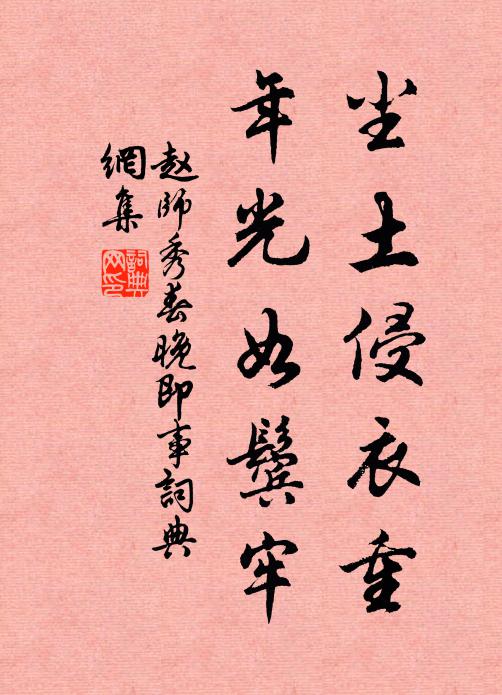 尘土侵衣重
年光如鬓牢
赵師秀春晚即事詞典
網集
詞典
网印